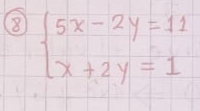 ⑧ { 5x - 2y = 11
x + 2y = 1